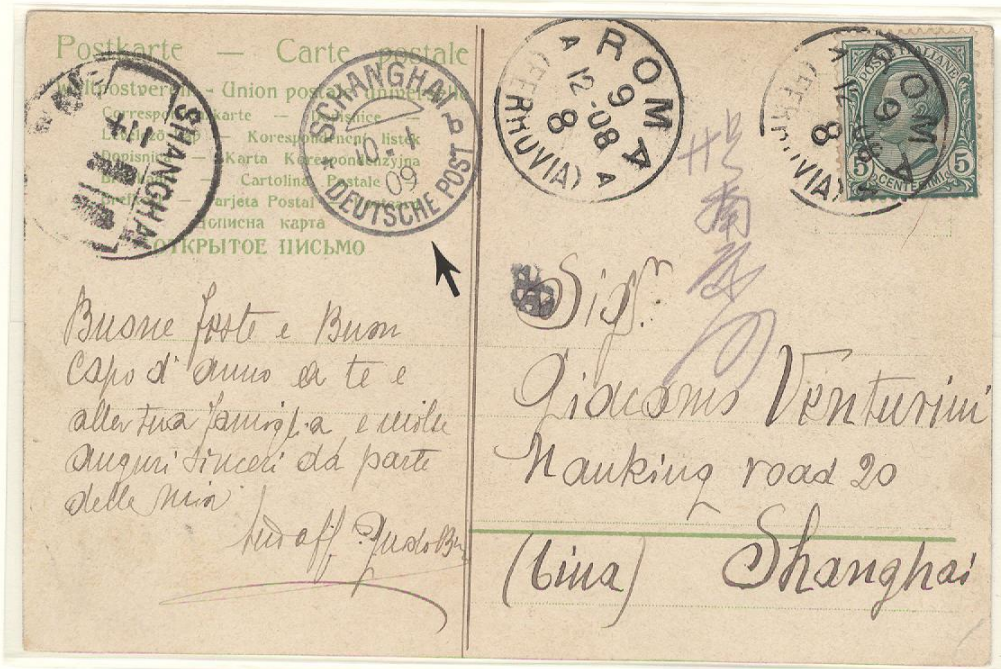 Postkarte — Carte postale
Weltpostverein - Union postale universelle
Correspondenzkarte — Dopisnice —
Korespondenční listek
Dopisnica — Karta Korespondencyjna
Cartolina Postale
Tarjeta Postal
Дописна карта
ОТКРЫТОЕ ПИСЬМО
SHANGHAI
SHANGHAI
SCHANGHAI
10.1
09
* DEUTSCHE POST
ROMA
9
12-08
8
(FERROVIA)
ROMA
9
12-08
8
(FERROVIA)
POSTE ITALIANE
5 5
CENTESIMI
Buone feste e Buon
Capo d'anno a te e
alla tua famiglia e molti
auguri sinceri da parte
della mia
tuo aff.
Sigr.
Giacomo Venturini
Nanking road 20
Shanghai
(Cina)